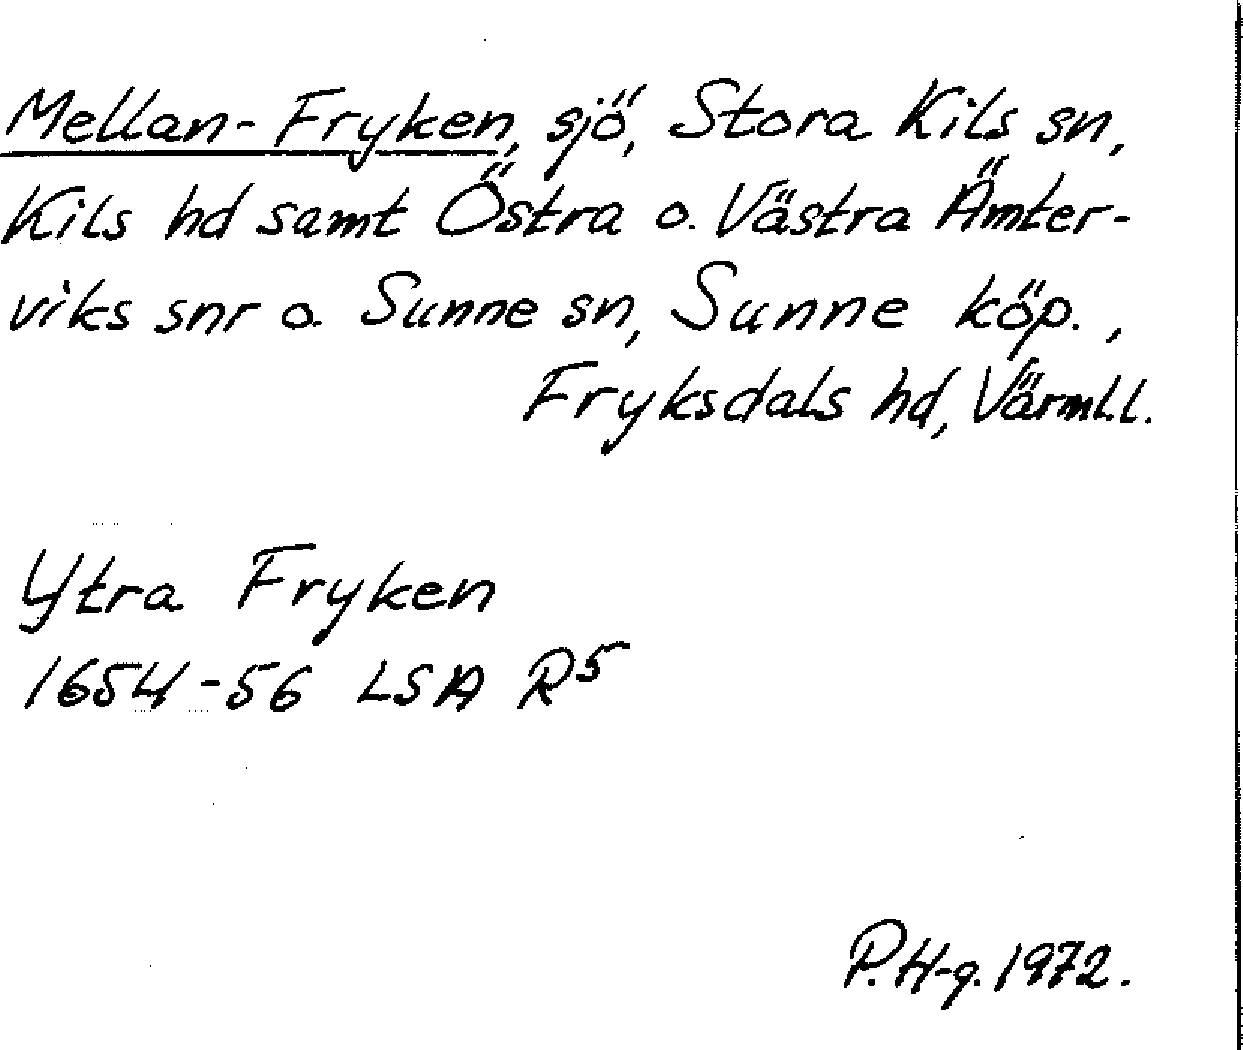 Mellan-Fryken, sjö, Stora Kils sn,
Kils hd samt Östra o. Västra Ämter-
viks snr o. Sunne sn, Sunne köp.,
Fryksdals hd, Värml.l.
Ytra Fryken
1654-56 LSA R5
P.H-g. 1972.